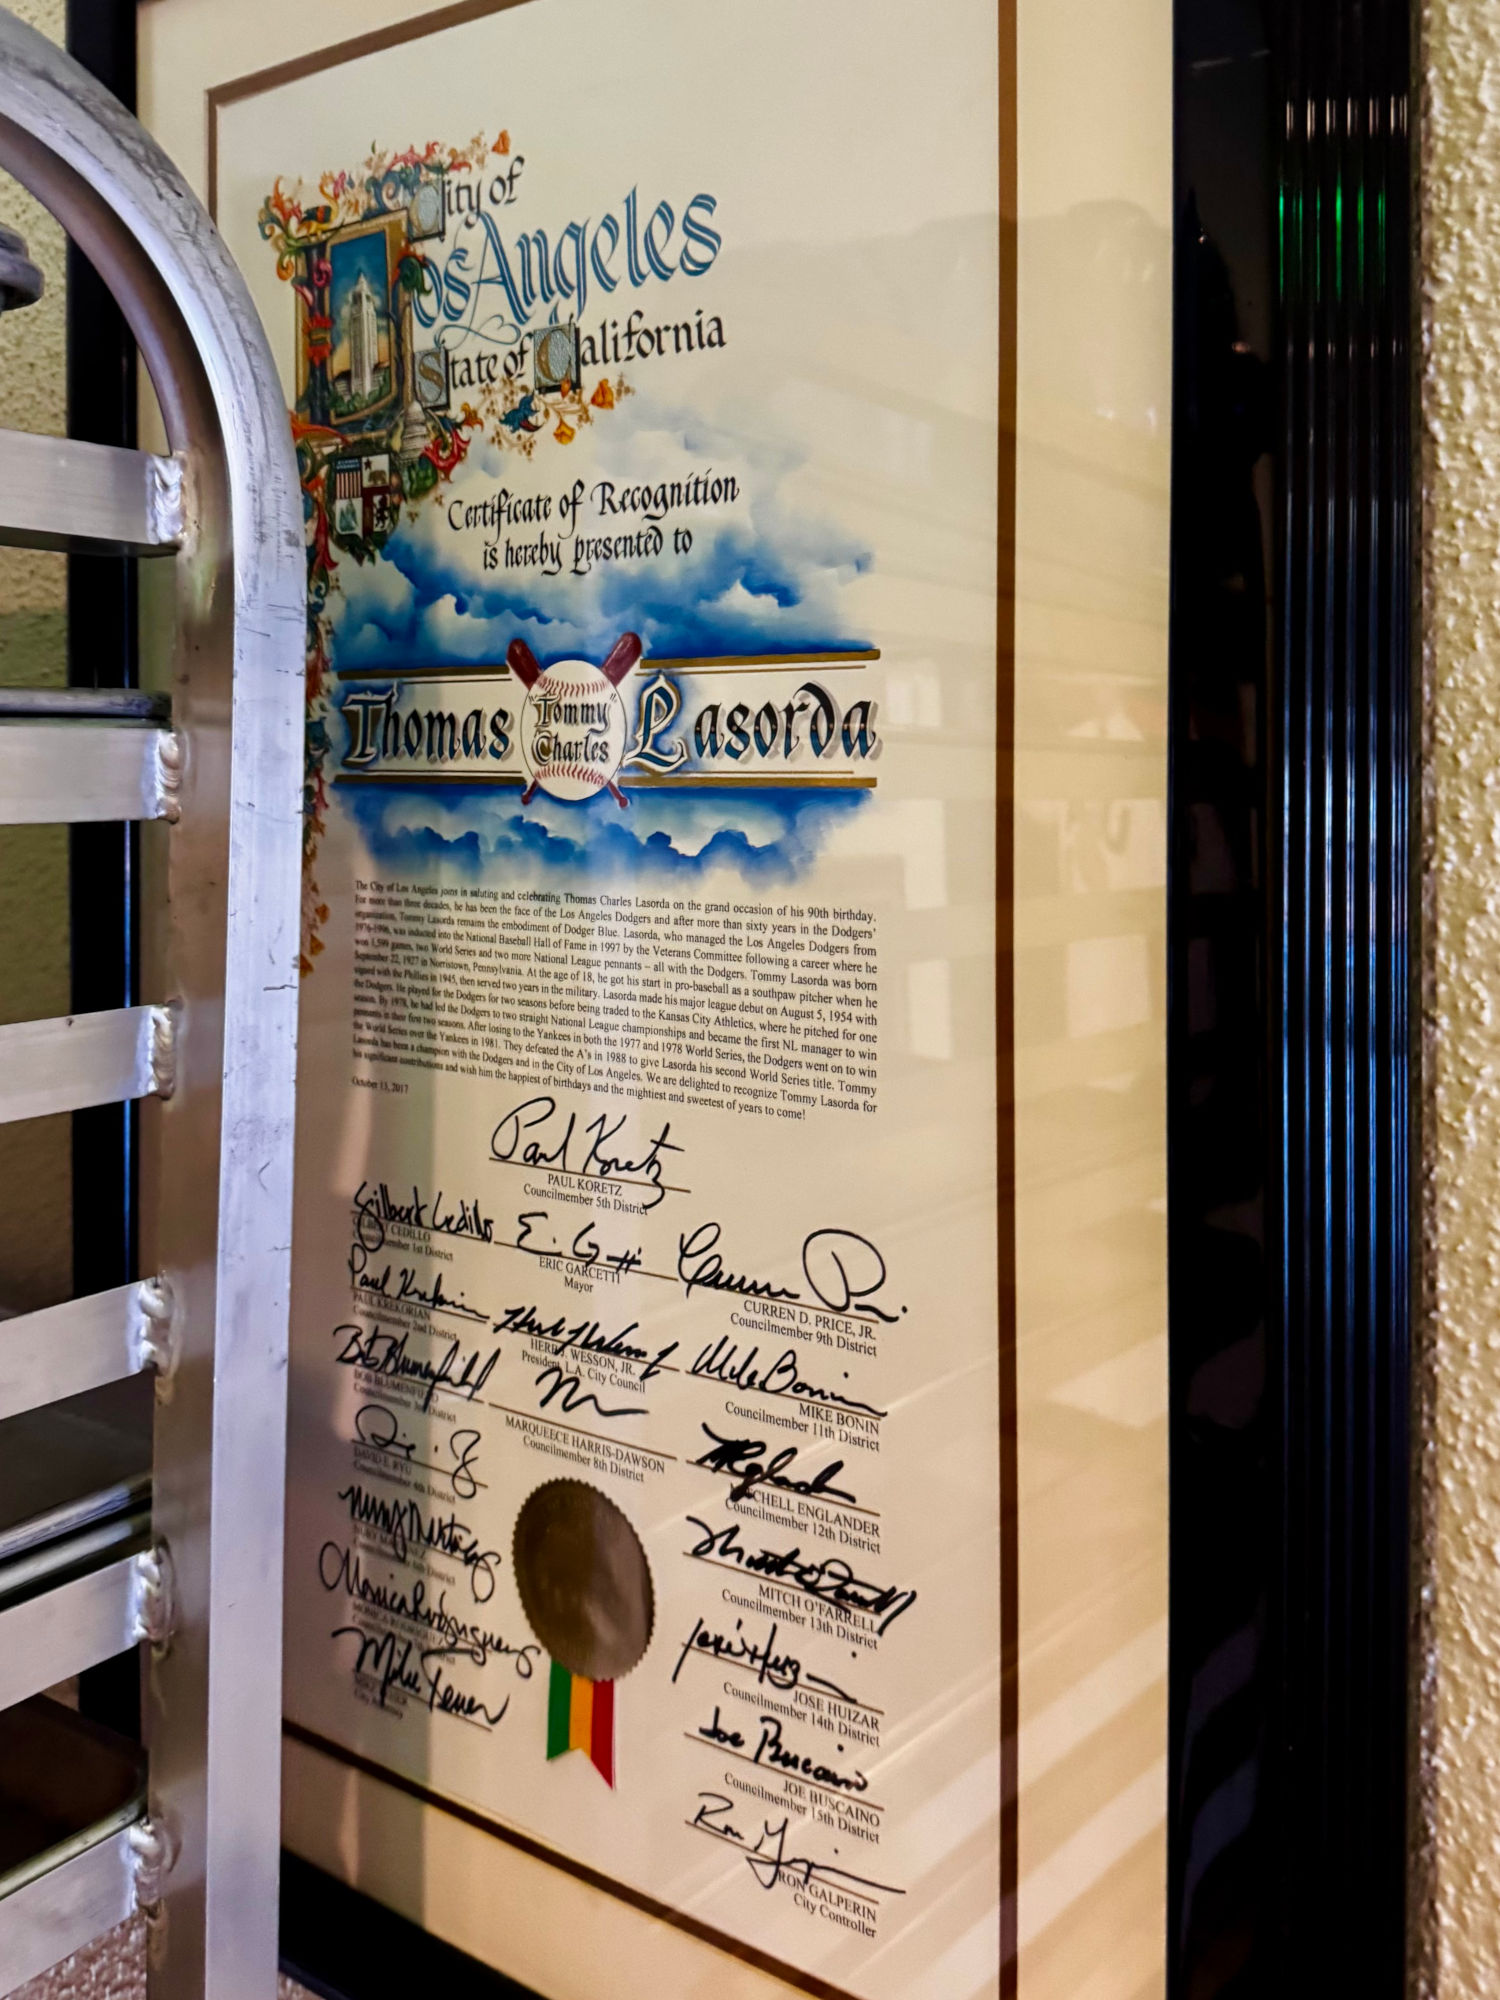 City of
Los Angeles
State of California
Certificate of Recognition
is hereby presented to
Thomas "Tommy" Charles Lasorda
The City of Los Angeles joins in saluting and celebrating Thomas Charles Lasorda on the grand occasion of his 90th birthday.
For more than three decades, he has been the face of the Los Angeles Dodgers and after more than sixty years in the Dodgers'
organization, Tommy Lasorda remains the embodiment of Dodger Blue. Lasorda, who managed the Los Angeles Dodgers from
1976-1996, was inducted into the National Baseball Hall of Fame in 1997 by the Veterans Committee following a career where he
won 1,599 games, two World Series and two more National League pennants – all with the Dodgers. Tommy Lasorda was born
September 22, 1927 in Norristown, Pennsylvania. At the age of 18, he got his start in pro-baseball as a southpaw pitcher when he
signed with the Phillies in 1945, then served two years in the military. Lasorda made his major league debut on August 5, 1954 with
the Dodgers. He played for the Dodgers for two seasons before being traded to the Kansas City Athletics, where he pitched for one
season. By 1978, he had led the Dodgers to two straight National League championships and became the first NL manager to win
pennants in their first two seasons. After losing to the Yankees in both the 1977 and 1978 World Series, the Dodgers went on to win
the World Series over the Yankees in 1981. They defeated the A's in 1988 to give Lasorda his second World Series title. Tommy
Lasorda has been a champion with the Dodgers and in the City of Los Angeles. We are delighted to recognize Tommy Lasorda for
his significant contributions and wish him the happiest of birthdays and the mightiest and sweetest of years to come!
October 13, 2017
Paul Koretz
PAUL KORETZ
Councilmember 5th District
Gilbert Cedillo
GILBERT CEDILLO
Councilmember 1st District
E. G
ERIC GARCETTI
Mayor
Curren P
CURREN D. PRICE, JR.
Councilmember 9th District
Paul Krekorian
PAUL KREKORIAN
Councilmember 2nd District
Herb J Wesson Jr
HERB J. WESSON, JR.
President, L.A. City Council
Mike Bonin
MIKE BONIN
Councilmember 11th District
Bob Blumenfield
BOB BLUMENFIELD
Councilmember 3rd District
MARQUEECE HARRIS-DAWSON
Councilmember 8th District
MITCHELL ENGLANDER
Councilmember 12th District
DAVID E. RYU
Councilmember 4th District
Mitch O'Farrell
MITCH O'FARRELL
Councilmember 13th District
Nury Martinez
NURY MARTINEZ
Councilmember 6th District
Jose Huizar
JOSE HUIZAR
Councilmember 14th District
Monica Rodriguez
MONICA RODRIGUEZ
Joe Buscaino
JOE BUSCAINO
Councilmember 15th District
Mike Feuer
MIKE FEUER
City Attorney
Ron G
RON GALPERIN
City Controller